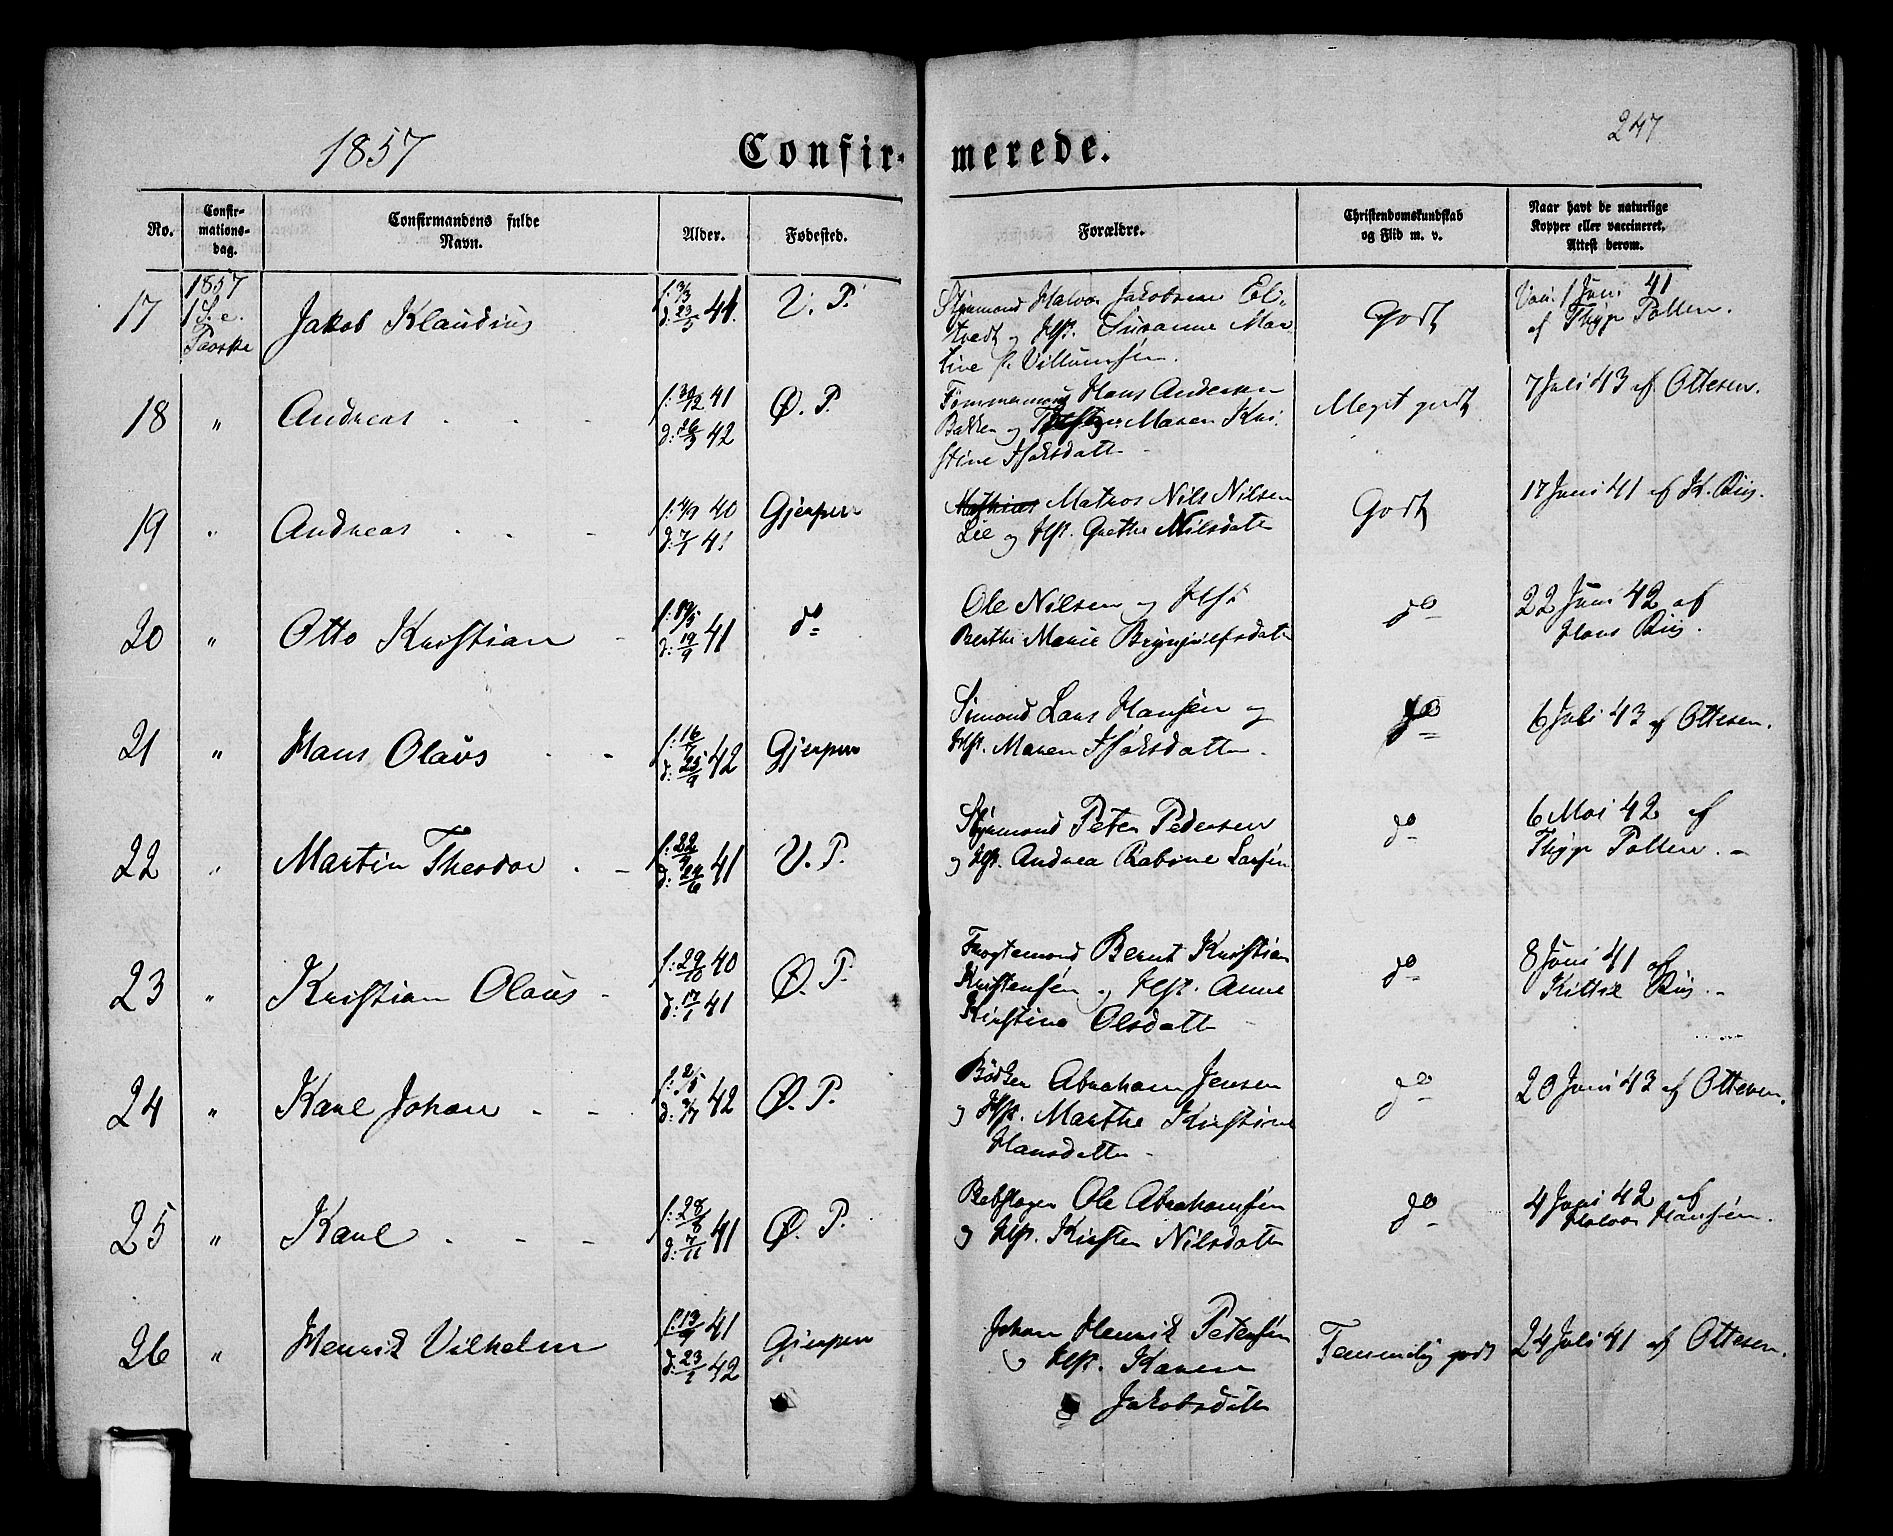 1857
Confirmerede.
247
No.
Confirmationsdag.
Confirmandens fulde Navn.
Alder.
Fødested.
Forældre.
Christendomskundskab og Flid m. v.
Naar havt de naturlige Kopper eller vaccineret. Attest derom.
17
1857
1 S. e.
Paaske
Jakob Klaudius
f: 3/3
d: 23/5 41.
V. P.
Styrmand Halvor Jakobsen El-
tvedt og Hst. Susanne Mar-
tine f. Villumsen.
Godt
Vac. 1 Juni 41
af Thyge Polten.
18
"
Andreas
f: 30/12 41
d: 26/3 42
Ø. P.
Tømmermand Hans Andersen
Bakken og Maren Kri-
stine Isaksdatter
Meget godt
7 Juli 43 af Ottesen.
19
"
Andreas
40
d: 7/1 41
Gjerpen
Mathias Matros Nils Nilsen
Lie og Hst. Grethe Nilsdatter
Godt
17 Juni 41 af K. Riis.
20
"
Otto Kristian
f: 19/5
d: 19/9 41
do
Ole Nilsen og Hst.
Berthe Marie Brynjulfsdatter
do
22 Juni 42 af
Hans Riis.
21
"
Hans Olaus
f: 16/7
d: 25/9 42
Gjerpen
Sømand Lars Hansen og
Hst. Maren Isaksdatter.
do
6 Juli 43 af Ottesen.
22
"
Martin Theodor
f: 22/4
d: 24/6 41
V. P.
Styrmand Peter Pedersen
og Hst. Andrea Rabine Larsen
do
6 Mai 42 af
Thyge Polten.
23
"
Kristian Olaus
f: 29/10 40
d: 17/1 41
Ø. P.
Fragtemand Bernt Kristian
Kristensen og Hst. Anne
Kirstine Olsdatter
do
8 Juni 41 af
Kittil Riis.
24
"
Karl Johan
f: 2/5
42
Ø. P.
Bødker Abraham Jensen
og Hst. Marthe Kirstine
Hansdatter
do
20 Juni 43 af Ottesen.
25
"
Karl
f: 28/8
d: 7/11 41
Ø. P.
Rebslager Ole Abrahamsen
og Hst. Kirsten Nilsdatter
do
4 Juni 42 af
Halvor Hansen.
26
"
Henrik Vilhelm
f: 13/9 41
d: 23/1 42
Gjerpen
Johan Henrik Petersen
og Hst. Karen
Jakobsdatter
Temmelig godt
24 Juli 41 af Ottesen.